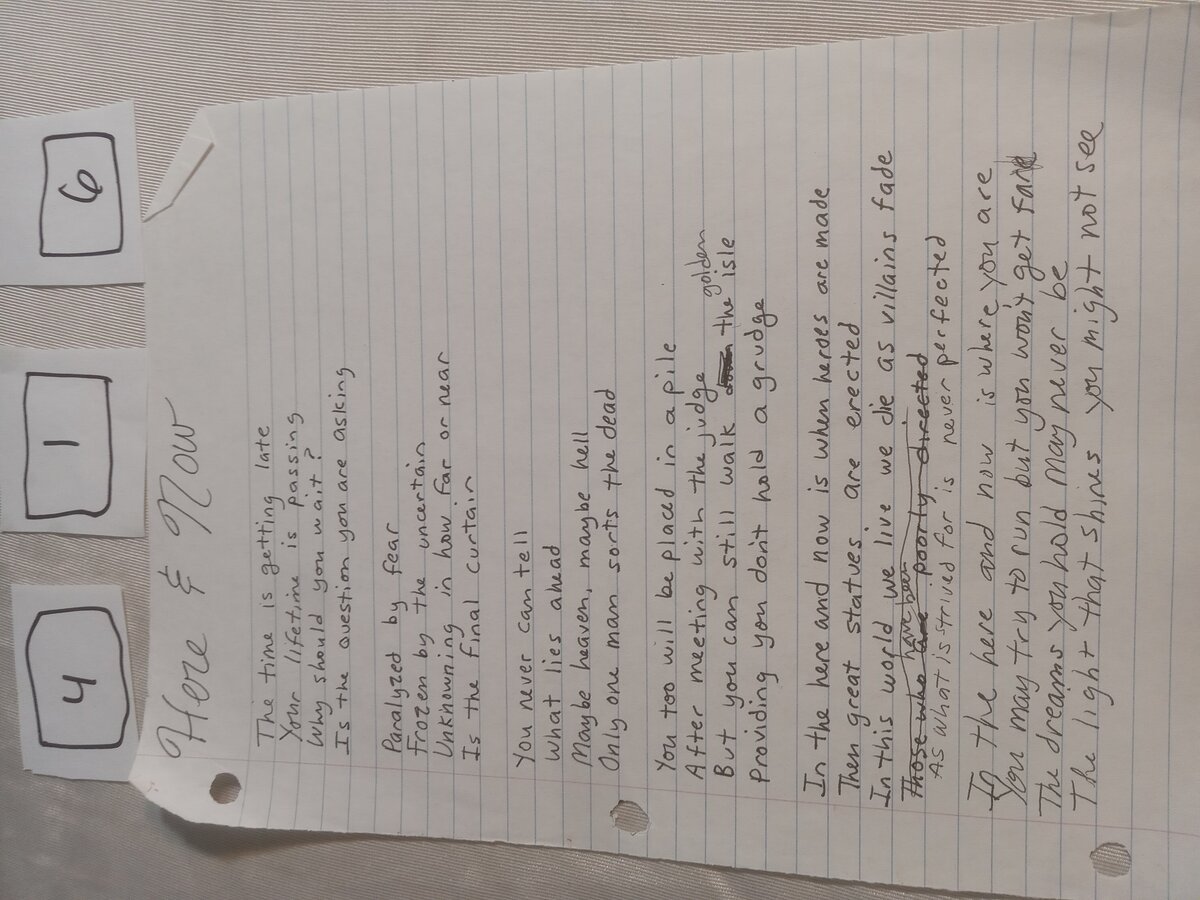 4 1 6
Here & Now
The time is getting late
Your lifetime is passing
Why should you wait?
Is the question you are asking
Paralyzed by fear
Frozen by the uncertain
Unknowning in how far or near
Is the final curtain
You never can tell
what lies ahead
Maybe heaven, maybe hell
Only one man sorts the dead
You too will be placed in a pile
After meeting with the judge
But you can still walk down the golden isle
Providing you don't hold a grudge
In the here and now is when heroes are made
Then great statues are erected
In this world we live we die as villains fade
Those who are have been poorly directed
As what is strived for is never perfected
In the here and now is where you are
You may try to run but you won't get far
The dreams you hold may never be
The light that shines you might not see